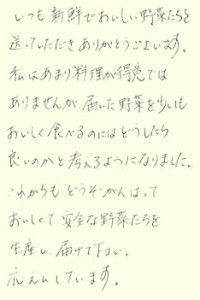 いつも新鮮でおいしい野菜たちを
送っていただきありがとうございます。
私はあまり料理が得意では
ありませんが、届いた野菜を少しでも
おいしく食べるのにはどうしたら
良いのかと考えるようになりました。
これからもどうぞがんばって
おいしくて安全な野菜たちを
生産し、届けて下さい。
応えんしています。